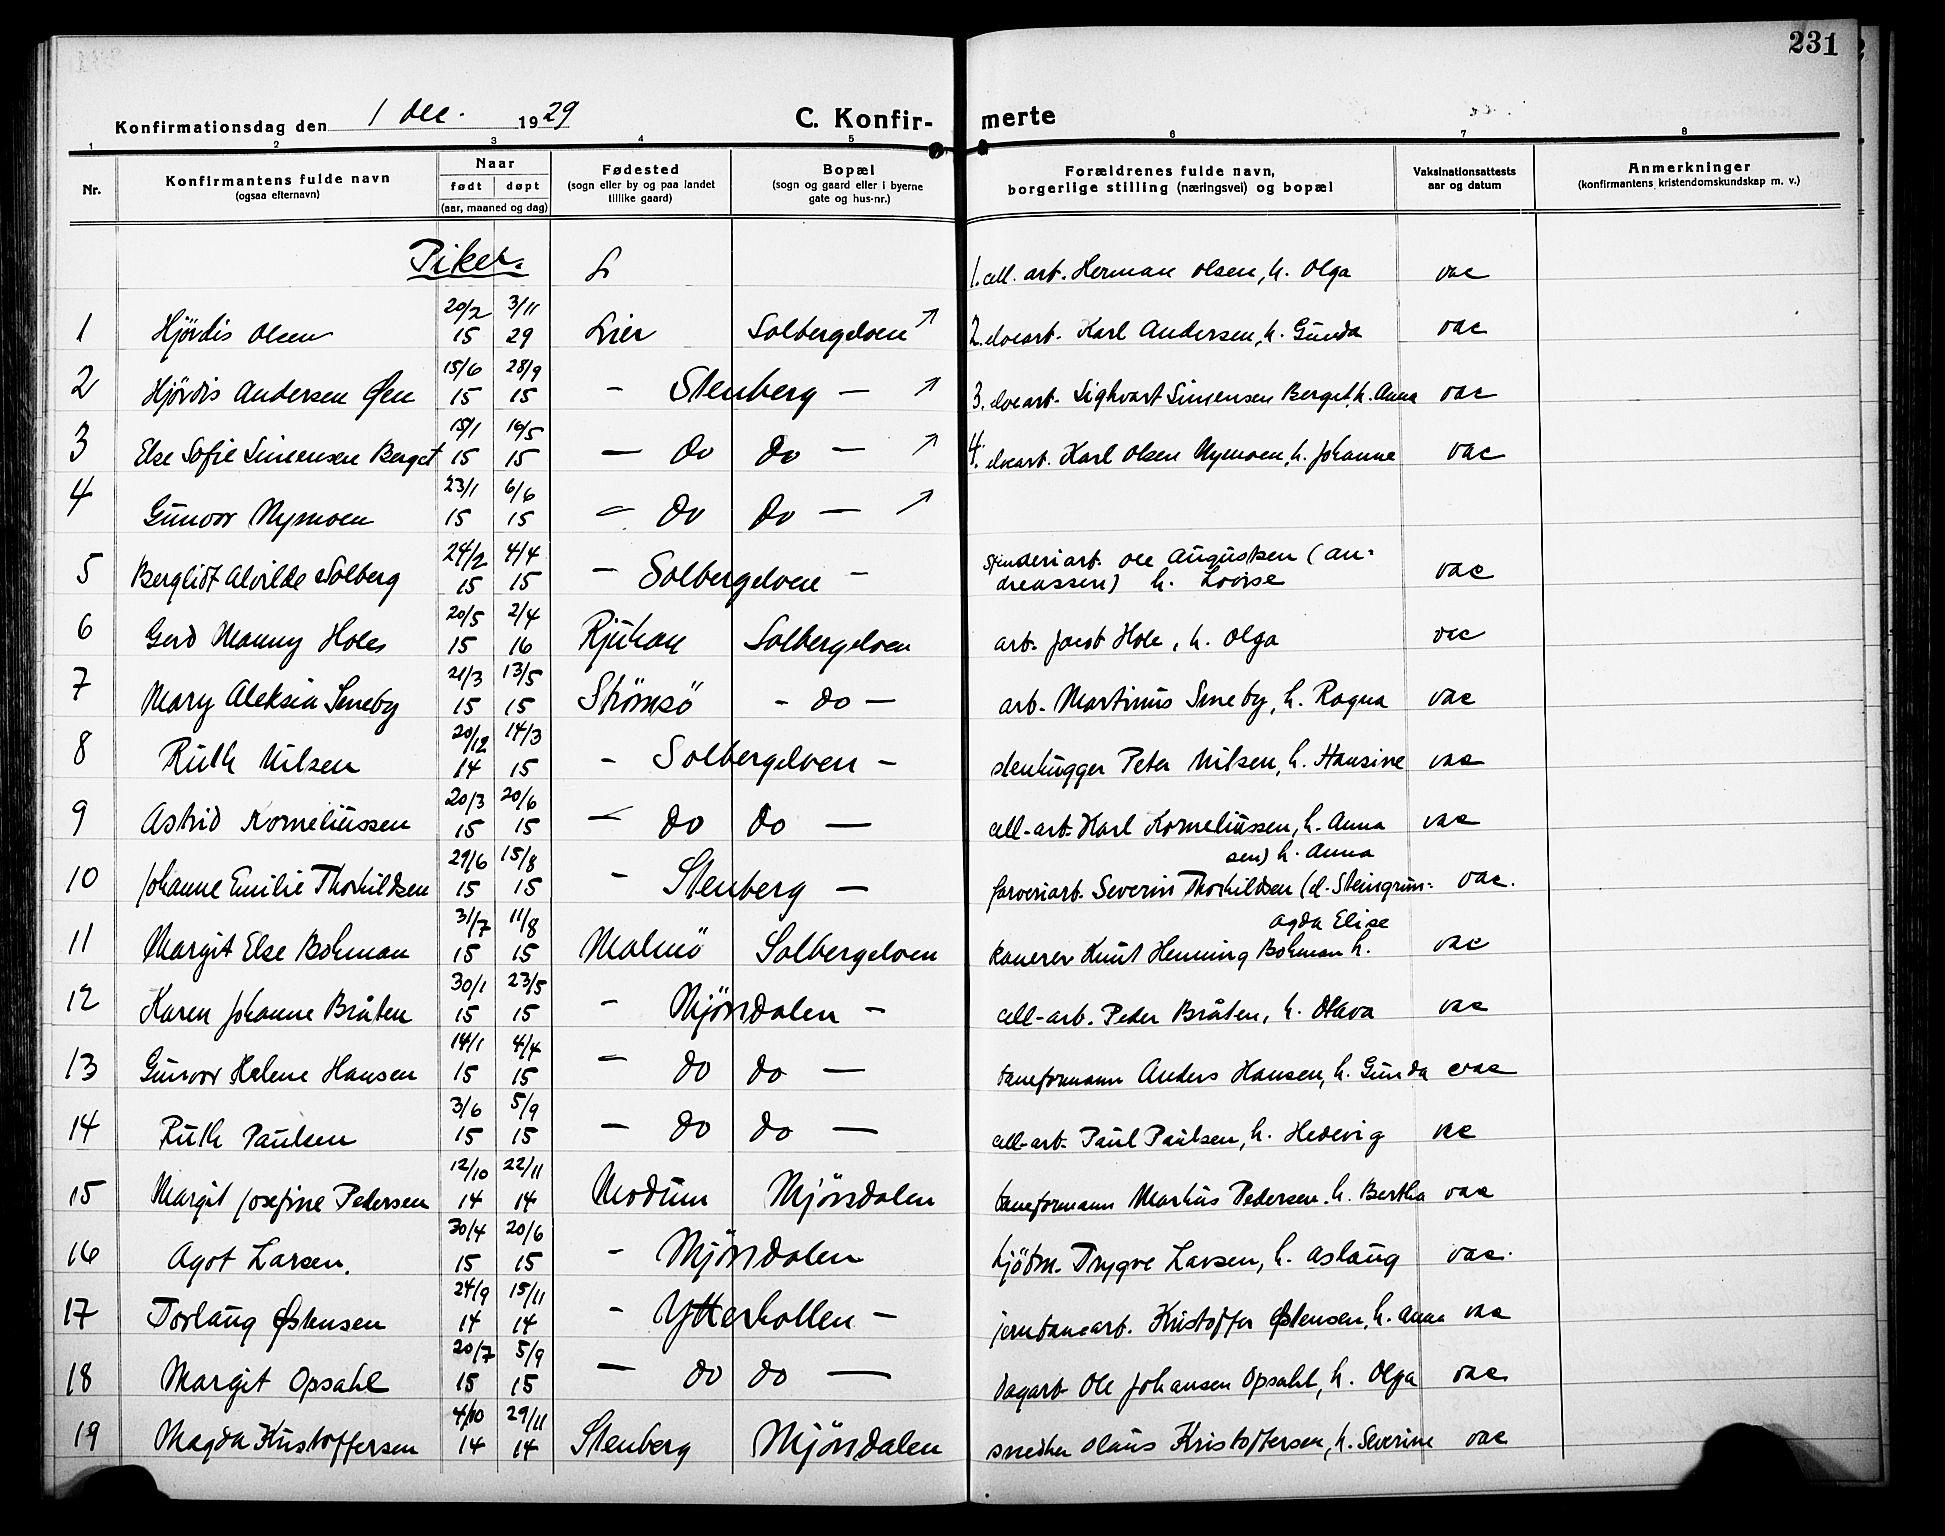 231
Konfirmationsdag den 1 dec. 1929 C. Konfir- merte
1 2 3 4 5 6 7 8
Nr. Konfirmantens fulde navn (ogsaa efternavn) Naar født døpt (aar, maaned og dag) Fødested (sogn eller by og paa landet tillike gaard) Bopæl (sogn og gaard eller i byerne gate og hus-nr.) Forældrenes fulde navn, borgerlige stilling (næringsvei) og bopæl Vaksinationsattests aar og datum Anmerkninger (konfirmantens kristendomskundskap m. v.)
Piker.
1 Hjördis Olsen 20/2 15 3/11 29 Lier Solbergelven 1. cell. arb. Herman Olsen, h. Olga vac
2 Hjördis Andersen Øen 15/6 15 28/9 15 - Stenberg - 2. elvearb. Karl Andersen, h. Gunda vac
3 Else Sofie Simensen Berget 15/1 15 16/5 15 - do do - 3. elvearb. Sighvart Simensen Berget, h. Anna vac
4 Gunvor Nymoen 23/1 15 6/6 15 - do do - 4. elvearb. Karl Olsen Nymoen, h. Johanne vac
5 Bergliot Alvilde Solberg 24/2 15 4/4 15 - Solbergelven - spinderiarb. Ole Augustsen (Andreassen) h. Lovise vac
6 Gerd Manny Hole 20/5 15 2/4 16 Rjukan Solbergelven arb. Jacob Hole, h. Olga vac
7 Mary Aleksia Smeby 21/3 15 13/5 15 Strömsö - do - arb. Martinus Smeby, h. Ragna vac
8 Ruth Nilsen 20/12 14 14/3 15 - Solbergelven - stenhugger Peter Nilsen, h. Hansine vac
9 Astrid Korneliussen 20/3 15 20/6 15 - do do - cell-arb. Karl Korneliussen, h. Anna vac
10 Johanne Emilie Thorkildsen 29/6 15 15/8 15 - Stenberg - farveriarb. Severin Thorkildsen (d. Steingrimsen) h. Anna vac.
11 Margit Else Bohman 31/7 15 11/8 15 Malmö Solbergelven Knut Henning Bohman h. Agda Elise vac
12 Karen Johanne Bråten 30/1 15 23/5 15 - Mjöndalen - cell-arb. Peder Bråten, h. Olava vac
13 Gunvor Helene Hansen 14/1 15 4/4 15 - do do - baneformann Anders Hansen, h. Gunda vac
14 Ruth Paulsen 3/6 15 5/9 15 - do do - cell-arb. Paul Paulsen, h. Hedevig vac
15 Margit Josefine Pedersen 12/10 14 22/11 14 Modum Mjöndalen baneformann Markus Pedersen, h. Bertha vac
16 Agot Larsen. 30/4 15 20/6 15 - Mjöndalen kjöbm. Trygve Larsen, h. Aslaug vac.
17 Torlaug Østensen 24/9 14 15/11 14 - Ytterkollen - jernbanearb. Kristoffer Østensen, h. Anna vac
18 Margit Opsahl 20/7 15 5/9 15 - do do - dagarb. Ole Johansen Opsahl, h. Olga vac.
19 Magda Kristoffersen 4/10 14 29/11 14 Stenberg Mjöndalen snedker Olaus Kristoffersen, h. Severine vac